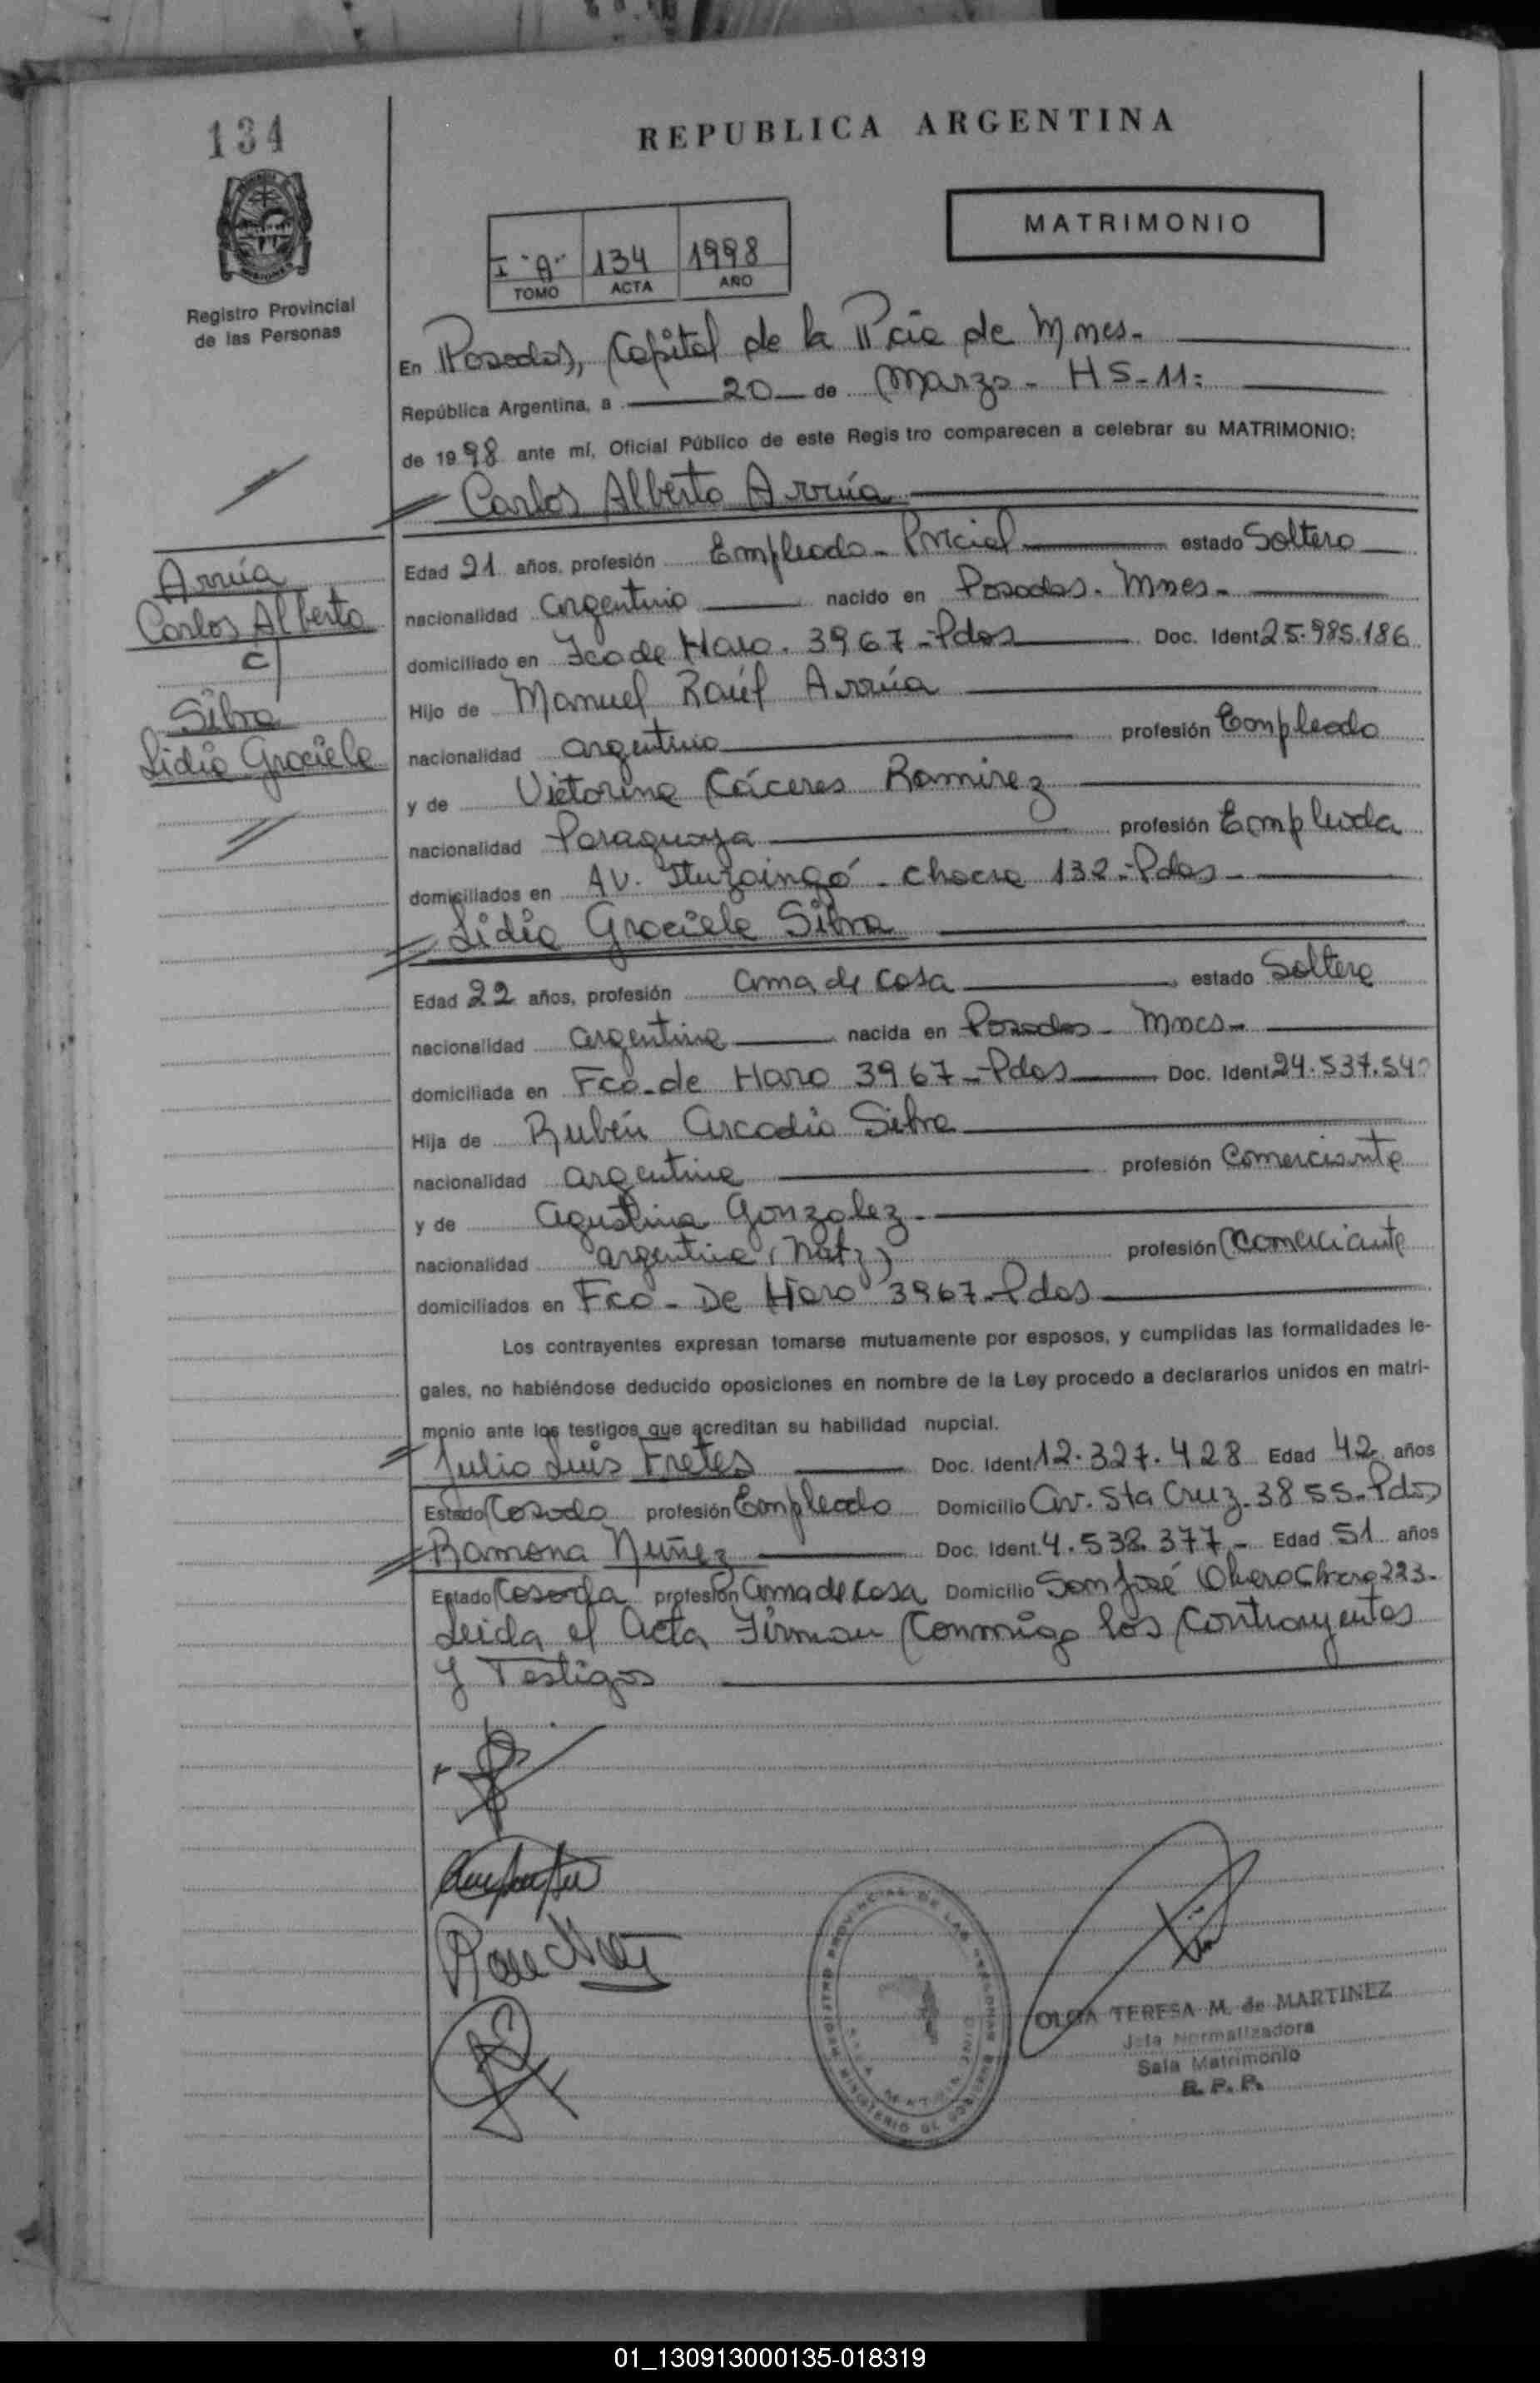 134
REPUBLICA ARGENTINA
MATRIMONIO
I "A" 134 1998
TOMO ACTA AÑO
Registro Provincial
de las Personas
En Posadas, Capital de la Pcia de Mnes.
República Argentina, a 20 de Marzo - HS-11:
de 1998 ante mí, Oficial Público de este Regis tro comparecen a celebrar su MATRIMONIO:
Carlos Alberto Arrúa
Edad 21 años, profesión Empleado - Pvicial estado Soltero
Arrúa
Carlos Alberto
c/
Silva
Lidia Graciela
nacionalidad argentino nacido en Posadas. Mnes.
domiciliado en Fco de Haro. 3967 - Pdas Doc. Ident 25.985.186
Hijo de Manuel Raúl Arrúa
nacionalidad argentino profesión Empleado
y de Victorina Cáceres Ramirez
nacionalidad Paraguaya profesión Empleada
domiciliados en AV. Ituzaingó - chacra 132 - Pdas
Lidia Graciela Silva
Edad 22 años, profesión ama de casa estado Soltera
nacionalidad argentina nacida en Posadas - Mnes
domiciliada en Fco - de Haro 3967 - Pdas Doc. Ident 24.537.54
Hija de Rubén Arcadio Silva
nacionalidad argentina profesión Comerciante
y de Agustina Gonzalez
nacionalidad argentina (Natz) profesión Comerciante
domiciliados en Fco - De Haro 3967 - Pdas
Los contrayentes expresan tomarse mutuamente por esposos, y cumplidas las formalidades le-
gales, no habiéndose deducido oposiciones en nombre de la Ley procedo a declararlos unidos en matri-
monio ante los testigos que acreditan su habilidad nupcial.
Julio Luis Fretes Doc. Ident. 12.327.428 Edad 42 años
Estado Casado profesión Empleado Domicilio Av. Sta Cruz. 3855 - Pdas
Ramona Nuñez Doc. Ident. 4.538.377 - Edad 51 años
Estado Casada profesión ama de casa Domicilio San José Obrero Chacra 223.
Leida el Acta Firman Conmigo los Contrayentes
y Testigos
OLGA TERESA M. de MARTINEZ
Jefa Normalizadora
Sala Matrimonio
R. P. P.
01_130913000135-018319